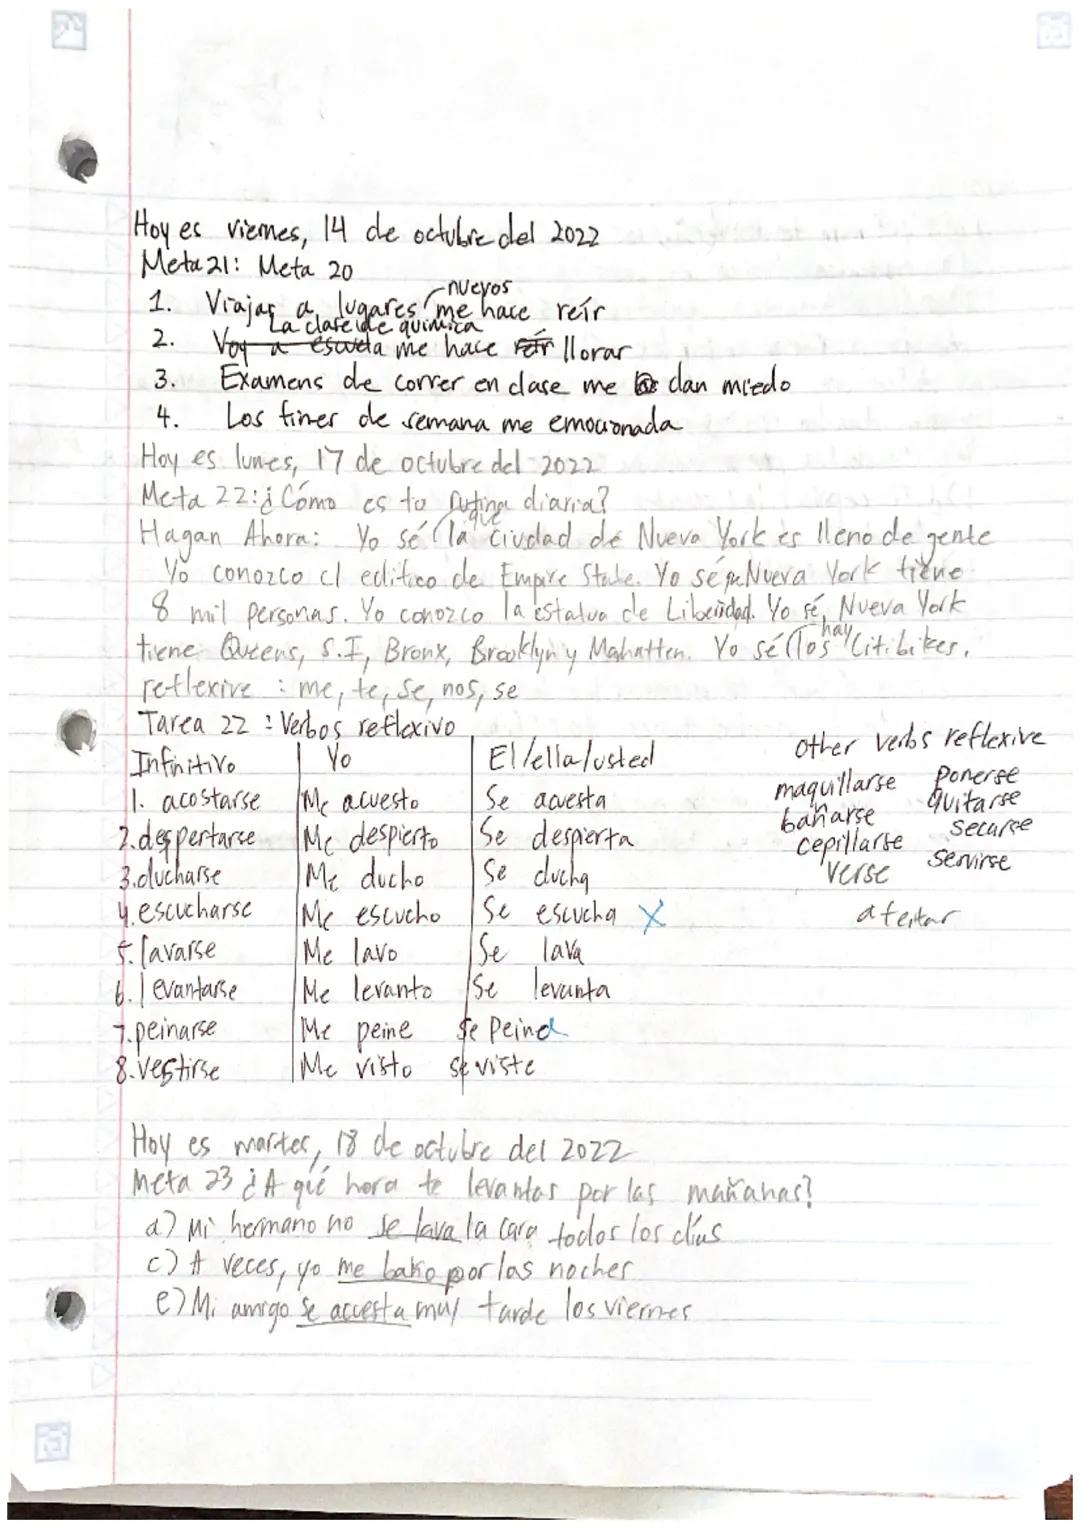 Hoy es viernes, 14 de octubre del 2022
Meta 21: Meta 20
nuevos
1. Viajar a lugares me hace reír
La clase de química
2. Voy a escuela me hace reír llorar
3. Examens de correr en clase me dan miedo
4. Los fines de semana me emocionada
Hoy es lunes, 17 de octubre del 2022
Meta 22: ¿Cómo es tu rutina diaria?
que
Hagan Ahora: Yo sé la ciudad de Nueva York es lleno de gente
Yo conozco el edifico de Empire State. Yo sé que Nueva York tiene
8 mil personas. Yo conozco la estatua de Libertdad. Yo sé, Nueva York
hay
tiene Queens, S.I, Bronx, Brooklyn y Mahatten. Yo sé los Citibikes.
reflexive : me, te, se, nos, se
Tarea 22 : Verbos reflexivo
Infinitivo Yo El/ella/usted
1. acostarse Me acuesto Se acuesta
2. despertarse Me despierto Se despierta
3. ducharse Me ducho Se ducha
4. escucharse Me escucho Se escucha X
5. lavarse Me lavo Se lava
6. levantarse Me levanto Se levanta
7. peinarse Me peine Se Peina
8. vestirse Me visto se viste
other verbs reflexive
maquillarse ponerse
bañarse quitarse
cepillarse secarse
verse servirse
afeitar
Hoy es martes, 18 de octubre del 2022
Meta 23 ¿A qué hora te levantas por las mañanas?
a) Mi hermano no se lava la cara todos los días
c) A veces, yo me baño por las noches
e) Mi amigo se acuesta muy tarde los viernes